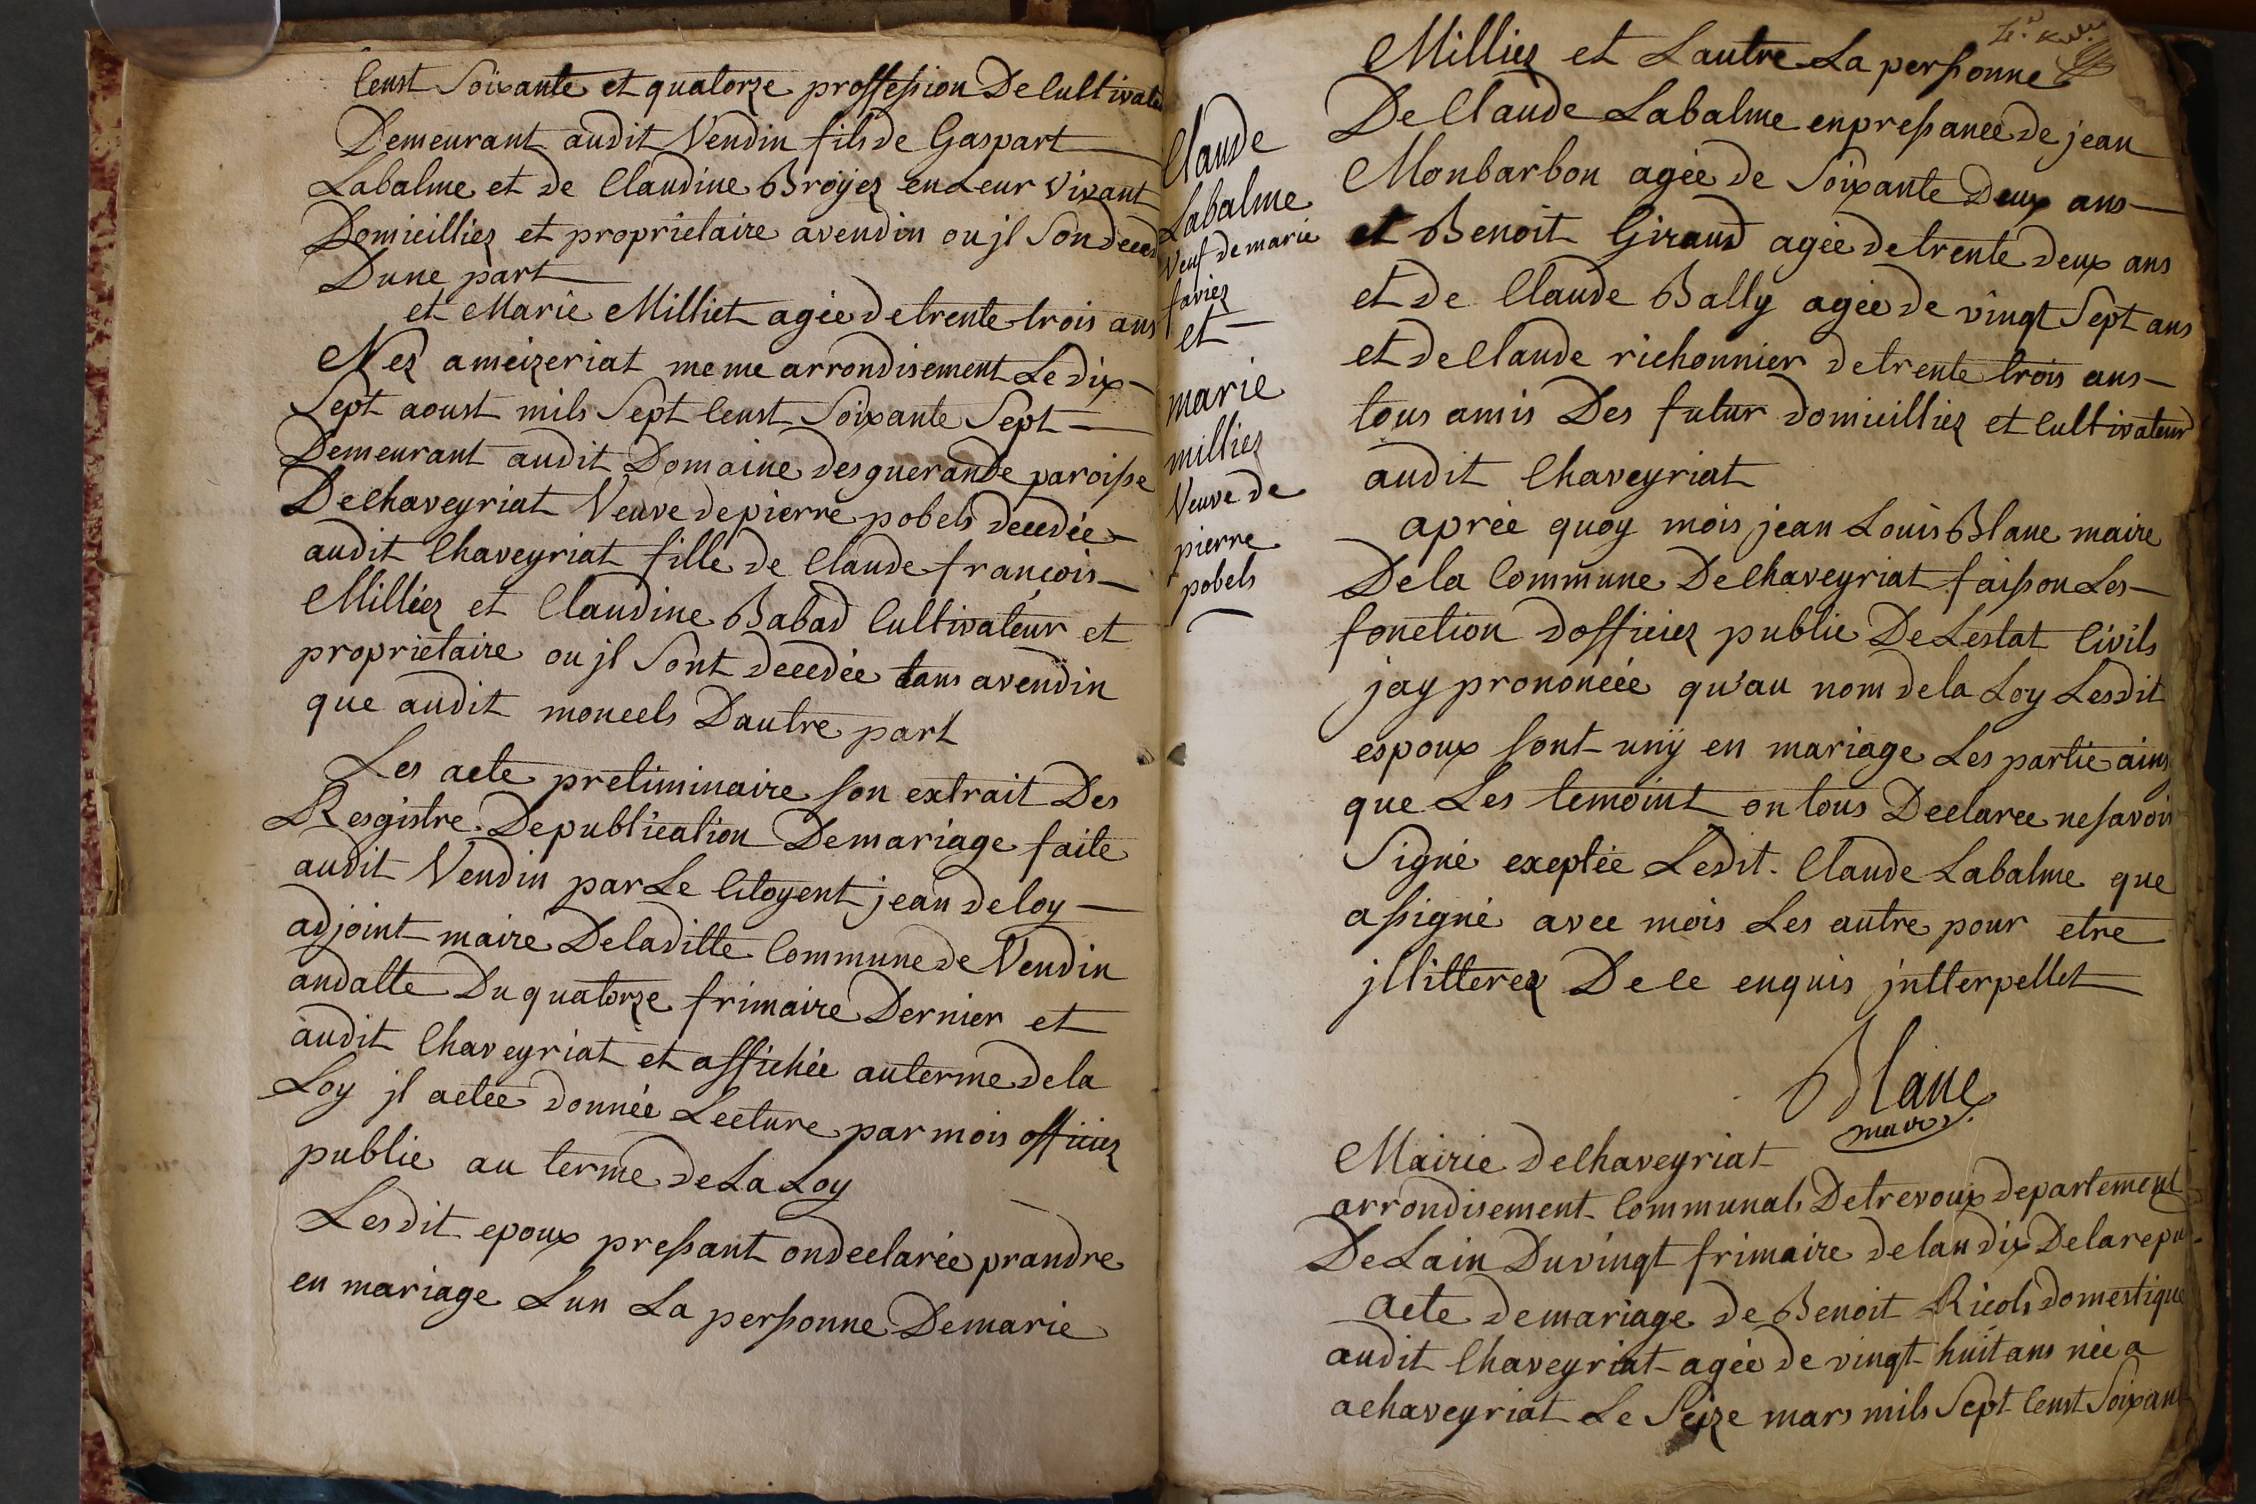 Censt Soixante et quatorze proffession De Cultivate
Demeurant audit Vendin fils de Gaspart
Labalme et de Claudine Broyez en Leur Vivant
Domicilliez et proprietaire avendin ou jl Son deced
Dune part
et Marie Milliet agée de trente trois ans
Nez ameizeriat meme arrondisement Le dix
Sept aoust mils Sept Censt Soixante Sept
Demeurant audit Domaine des guerande paroisse
De Chaveyriat Veuve de pierre pobels decedée
audit Chaveyriat fille de Claude françois
Milliez et Claudine Babad Cultivateur et
proprietaire ou jl Sont decedée tans avendin
que audit moncels Dautre part
Les acte preliminaire son extrait Des
Resgistre De publication De mariage faite
audit Vendin par Le Citoyent jean deloy
adjoint maire De la ditte Commune de Vendin
andatte Du quatorze frimaire Dernier et
audit Chaveyriat et affichée au terme de la
Loy jl a etée donnée Lecture par mois officiez
public au terme de La Loy
Les dit epoux pressant on declarée prandre
en mariage Lun La personne De marie
Claude
Labalme
Veuf de marie
faviez
et
marie
milliez
Veuve de
pierre
pobels
Milliez et Lautre La personne
De Claude Labalme en pressance de jean
Monbarbon agée de Soixante Deux ans
et Benoit Giraud agée de trente deux ans
et de Claude Bally agée de vingt Sept ans
et de Claude richonnier de trente trois ans
tous amis Des futur domicilliez et Cultivateur
audit Chaveyriat
aprée quoy mois jean Louis Blanc maire
De la Commune De Chaveyriat faisson Les
fonction d'officiez public De Lestat Civils
jay prononcée qu'au nom de la Loy Lesdit
espoux sont uny en mariage Les partie ains
que Les temoint on tous Declaree ne savoir
Signé exeptée Ledit. Claude Labalme que
assigné avec mois Les autre pour etre
jllitterez De ce enquis jntterpellet
Blanc
maire
Mairie de Chaveyriat
arrondisement Communals De trevoux departement
De Lain Du vingt frimaire de lan dix De la repu
Acte de mariage de Benoit Ricols domestique
audit Chaveyriat agée de vingt huit ans née a
achaveyriat Le Seize mars mils Sept Censt Soixan